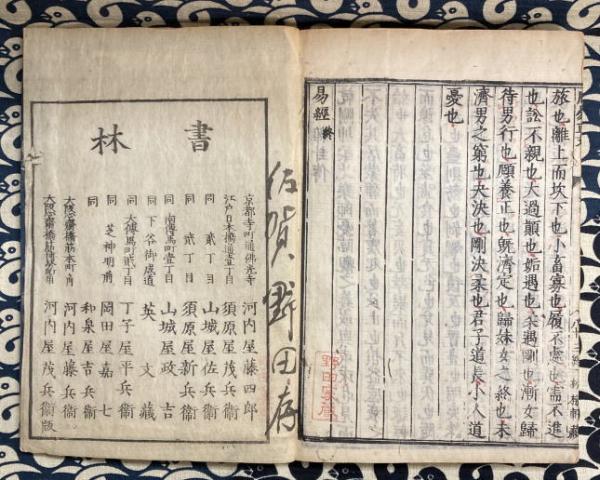 旅也離上而坎下也小畜寡也履不處也需不進
也訟不親也大過顚也姤遇也柔遇剛也漸女歸
待男行也頤養正也旣濟定也歸妹女之終也未
濟男之窮也夬決也剛決柔也君子道長小人道
憂也
易經終
佐賀野田序
書林
京都寺町通佛光寺 河内屋藤四郎
江戸日本橋通壹丁目 須原屋茂兵衞
同 貳丁目 山城屋佐兵衞
同 貳丁目 須原屋新兵衞
同 南傳馬町壹丁目 山城屋政吉
同 下谷御成道 英文藏
同 大傳馬町貳丁目 丁子屋平兵衞
同 芝神明前 岡田屋嘉七
同 和泉屋吉兵衞
大阪心齋橋筋本町角 河内屋藤兵衞
大阪心齋橋筋博労町角 河内屋茂兵衞版